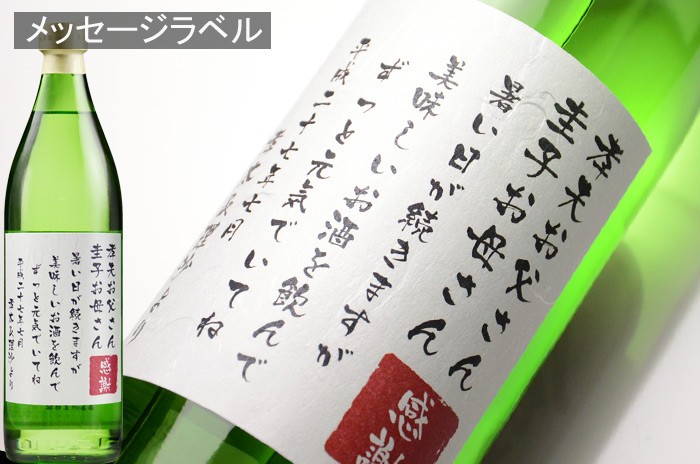 メッセージラベル
孝夫お父さん
圭子お母さん
暑い日が続きますが
美味しいお酒を飲んで
ずっと元気でいてね
平成二十七年七月
より
感謝
孝夫お父さん
圭子お母さん
暑い日が続きますが
美味しいお酒を飲んで
ずっと元気でいてね
平成二十七年七月
より
感謝